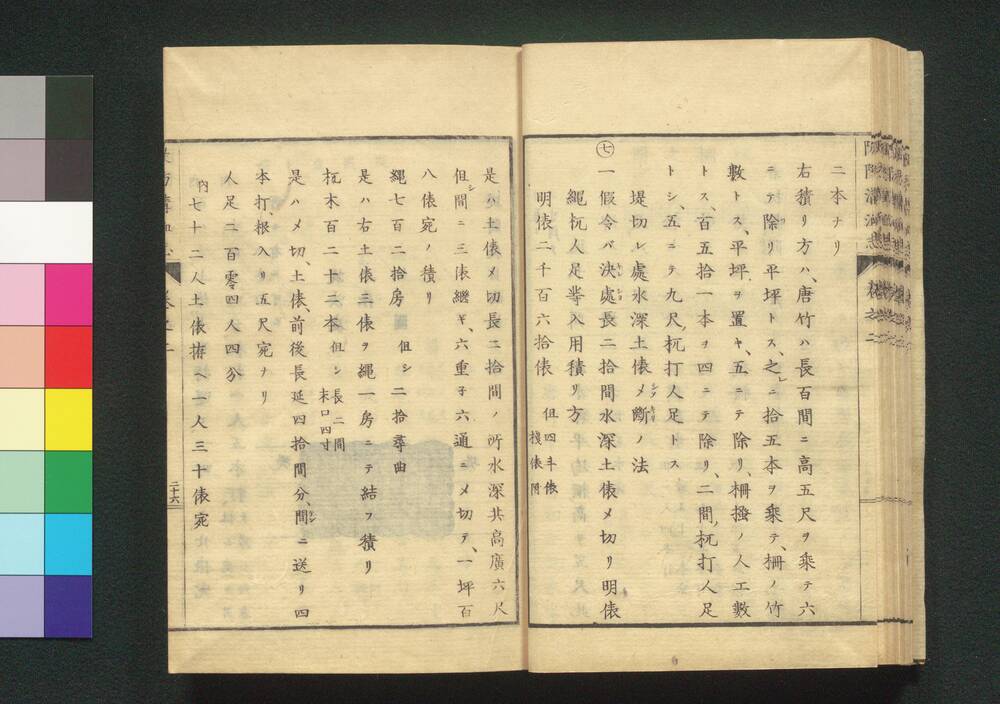 二本ナリ
右積リ方ハ、唐竹ハ長百間ニ高五尺ヲ乘テ六
ニテ除リ平坪トス、之ニ拾五本ヲ乘テ、柵ノ竹
數トス、平坪ヲ置キ、五ニテ除リ、柵掻ノ人工數
トス、百五拾一本ヲ四ニテ除リ、二間杭打人足
トシ、五ニテ九尺杭打人足トス
堤切レ處水深土俵メ斷ノ法
㊆
一假令バ決處長二拾間水深土俵メ切リ明俵
繩杭人足等入用積リ方
明俵二千百六拾俵 但四斗俵
棧俵附
是ハ土俵メ切長二拾間ノ所水深共高廣六尺
但シ間ニ三俵繼ギ、六重子六通ニメ切テ、一坪百
八俵宛ノ積リ
繩七百二拾房 但シ二拾尋曲
是ハ右土俵三俵ヲ繩一房ニテ結フ積リ
杭木百二十二本 但シ長二間
末口四寸
是ハメ切、土俵、前後長延四拾間分、間ニ送リ四
本打、根入リ五尺宛ナリ
人足二百零四人四分
內七十二人土俵拵ヘ一人三十俵宛
二十六